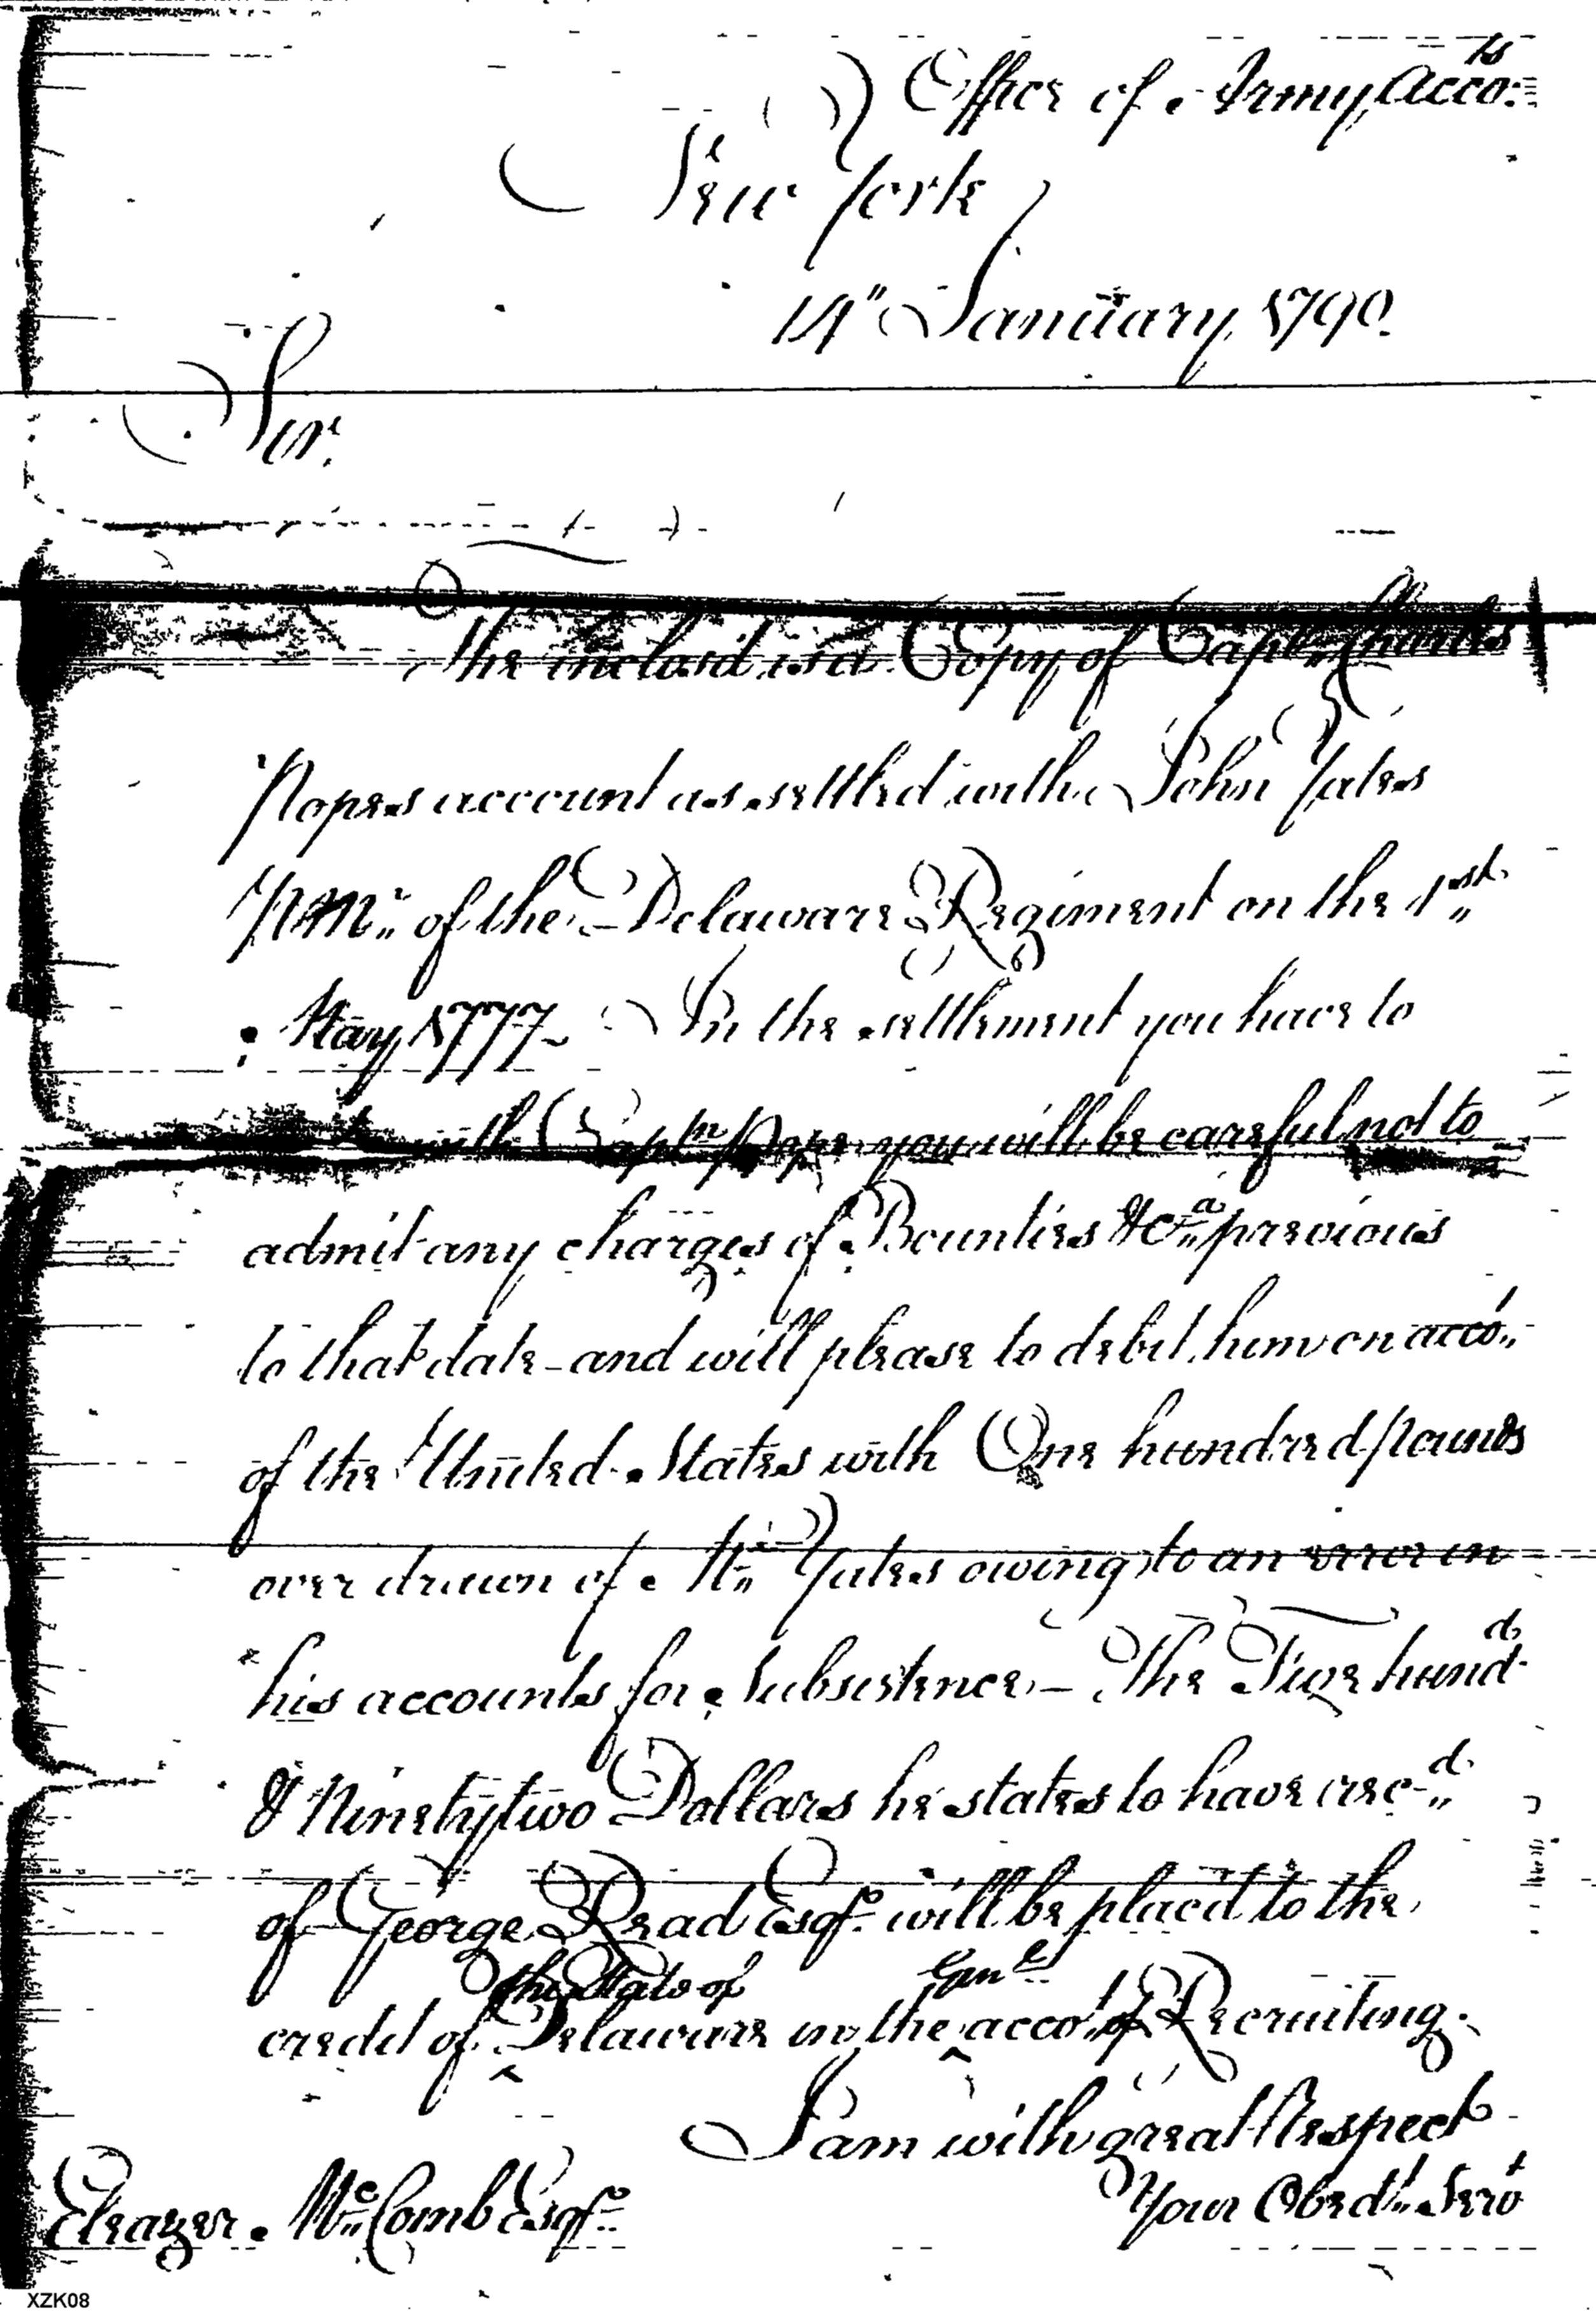 Office of Army Acco.ts
New York
14" January 1790.
Sir.
The inclosed is a Copy of Capt.n Charles
Popes account as settled with John Yates
P Mr.. of the Delaware Regiment on the 1st..
May 1777 - In the settlement you have to
with Captn Pope you will be careful not to
admit any charges of Bounties &c.a previous
to that date - and will please to debit him on acco.t
of the United States with One hundred pounds
over drawn of Mr.. Yates owing to an error in
his accounts for Subsistence - The Five hund.d
& Ninety two Dollars he states to have rec-d..
of George Read Esqr. will be placed to the
the State of
credit of ^ Delaware in the ^ acco.t of Recruiting.
I am with great Respect
Your Obedt.. Servt
Eleazer McComb Esqr.
XZK08